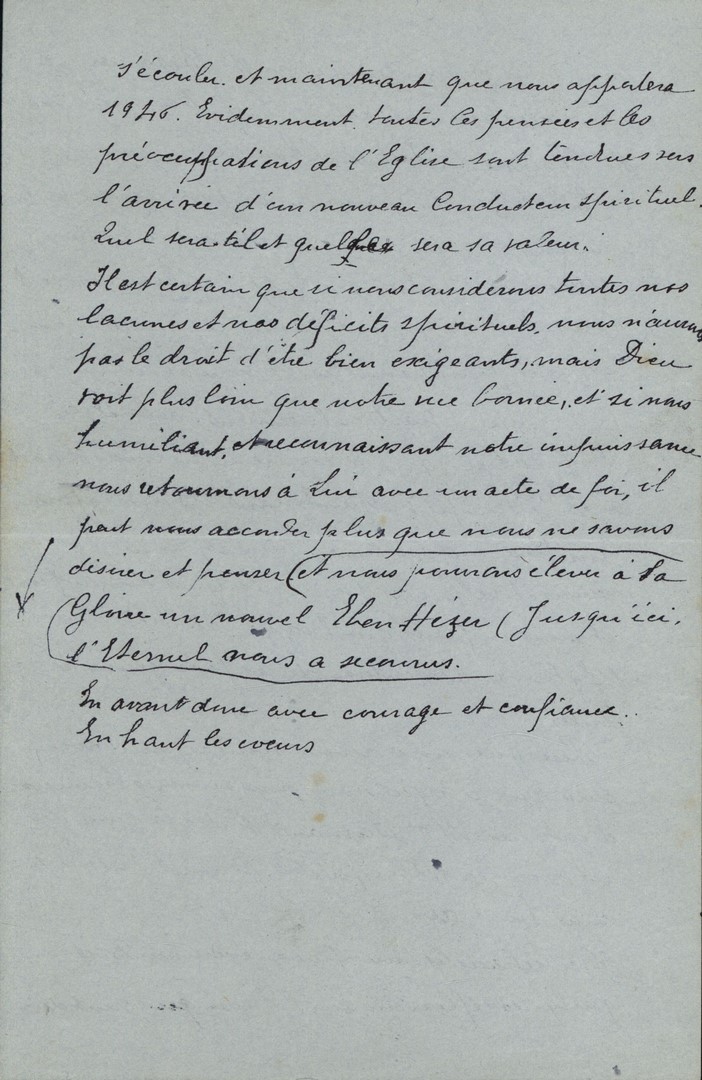 s'écouler. et maintenant que nous apportera
1946. Evidemment. toutes les pensées et les
préoccupations de l'Eglise sont tendues vers
l'arrivée d'un nouveau Conducteur spirituel.
Quel sera-t-il et quel sera sa valeur.
Il est certain que si nous considerons toutes nos
lacunes et nos déficits spirituels. nous n'aurons
pas le droit d'être bien exigeants, mais Dieu
voit plus loin que notre vue bornée, et si nous
humiliant, et reconnaissant notre impuissance
nous retournons à Lui avec un acte de foi, il
peut nous accorder plus que nous ne savons
désirer et penser (et nous pourrons élever à Sa
Gloire un nouvel Eben Hézer (Jusqu'ici.
l'Eternel nous a secourus.
En avant donc avec courage et confiance..
En haut les coeurs